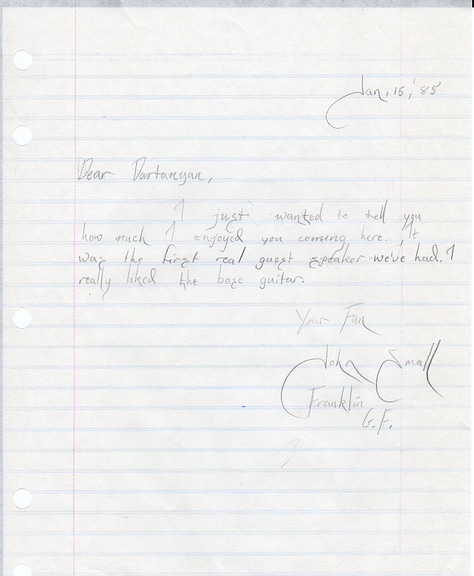 Jan. 15, '85
Dear Dartanyan,
I just wanted to tell you
how much I enjoyed you coming here. It
was the first real guest speaker we've had. I
really liked the base guitar.
Your Fan
John Small
Franklin
G.F.